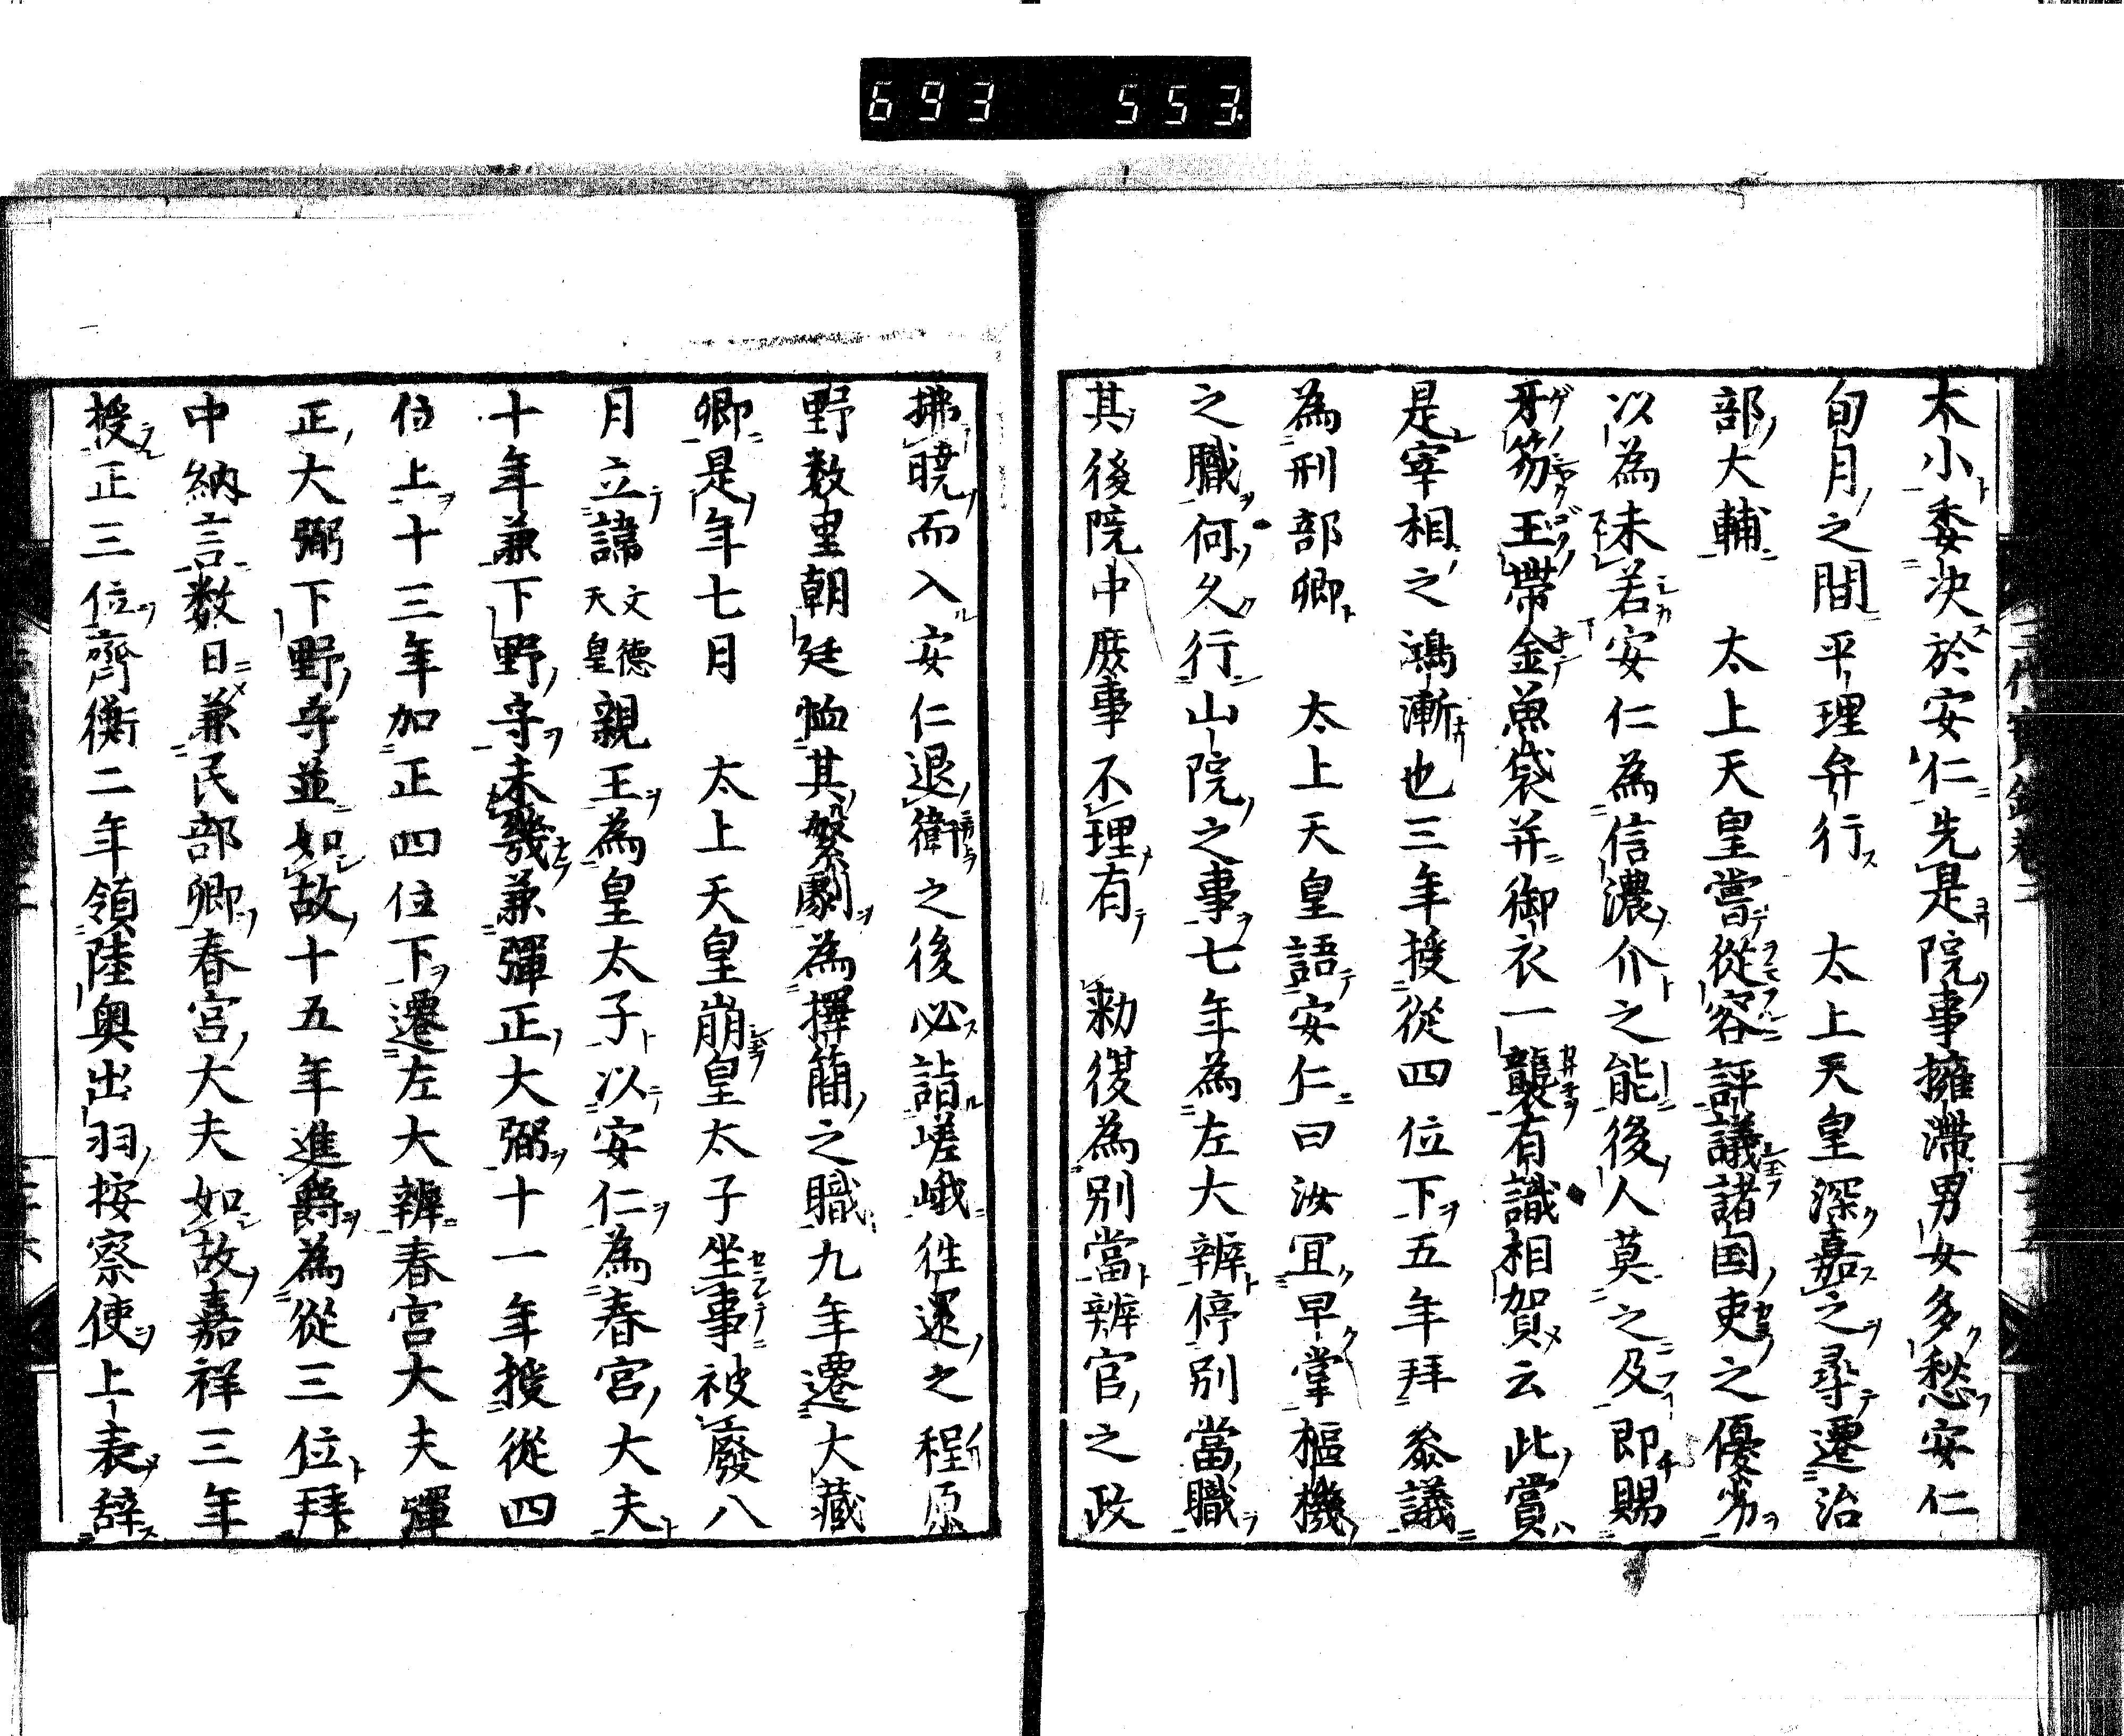 693 553
木小委决於安仁先是院事擁滯男女多愁安仁
旬月之間平理弁行 太上天皇深嘉之尋遷治
部大輔 太上天皇嘗從容評議諸国吏之優劣
以為未若安仁為信濃介之能後人莫之及即賜
牙笏王帶金魚袋并御衣一襲有識相賀云此賞
是宰相之鴻漸也三年授從四位下五年拜叅議
為刑部卿 太上天皇語安仁曰汝冝早掌樞機
之職何久行山院之事七年為左大辨停別當職
其後院中庶事不理有 勑復為別當辨官之政
拂曉而入安仁退衛之後必詣嵯峨徃還之程原
野数里朝廷恤其繁劇為擇簡之職九年遷大藏
卿是年七月 太上天皇崩皇太子坐事被廢八
月立諱文德天皇親王為皇太子以安仁為春宮大夫
十年兼下野守未幾兼彈正大弼十一年授從四
位上十三年加正四位下遷左大辨春宮大夫彈
正大弼下野守並如故十五年進爵為從三位拜
中納言数日兼民部卿春宮大夫如故嘉祥三年
授正三位齊衡二年領陸奥出羽按察使上表辞